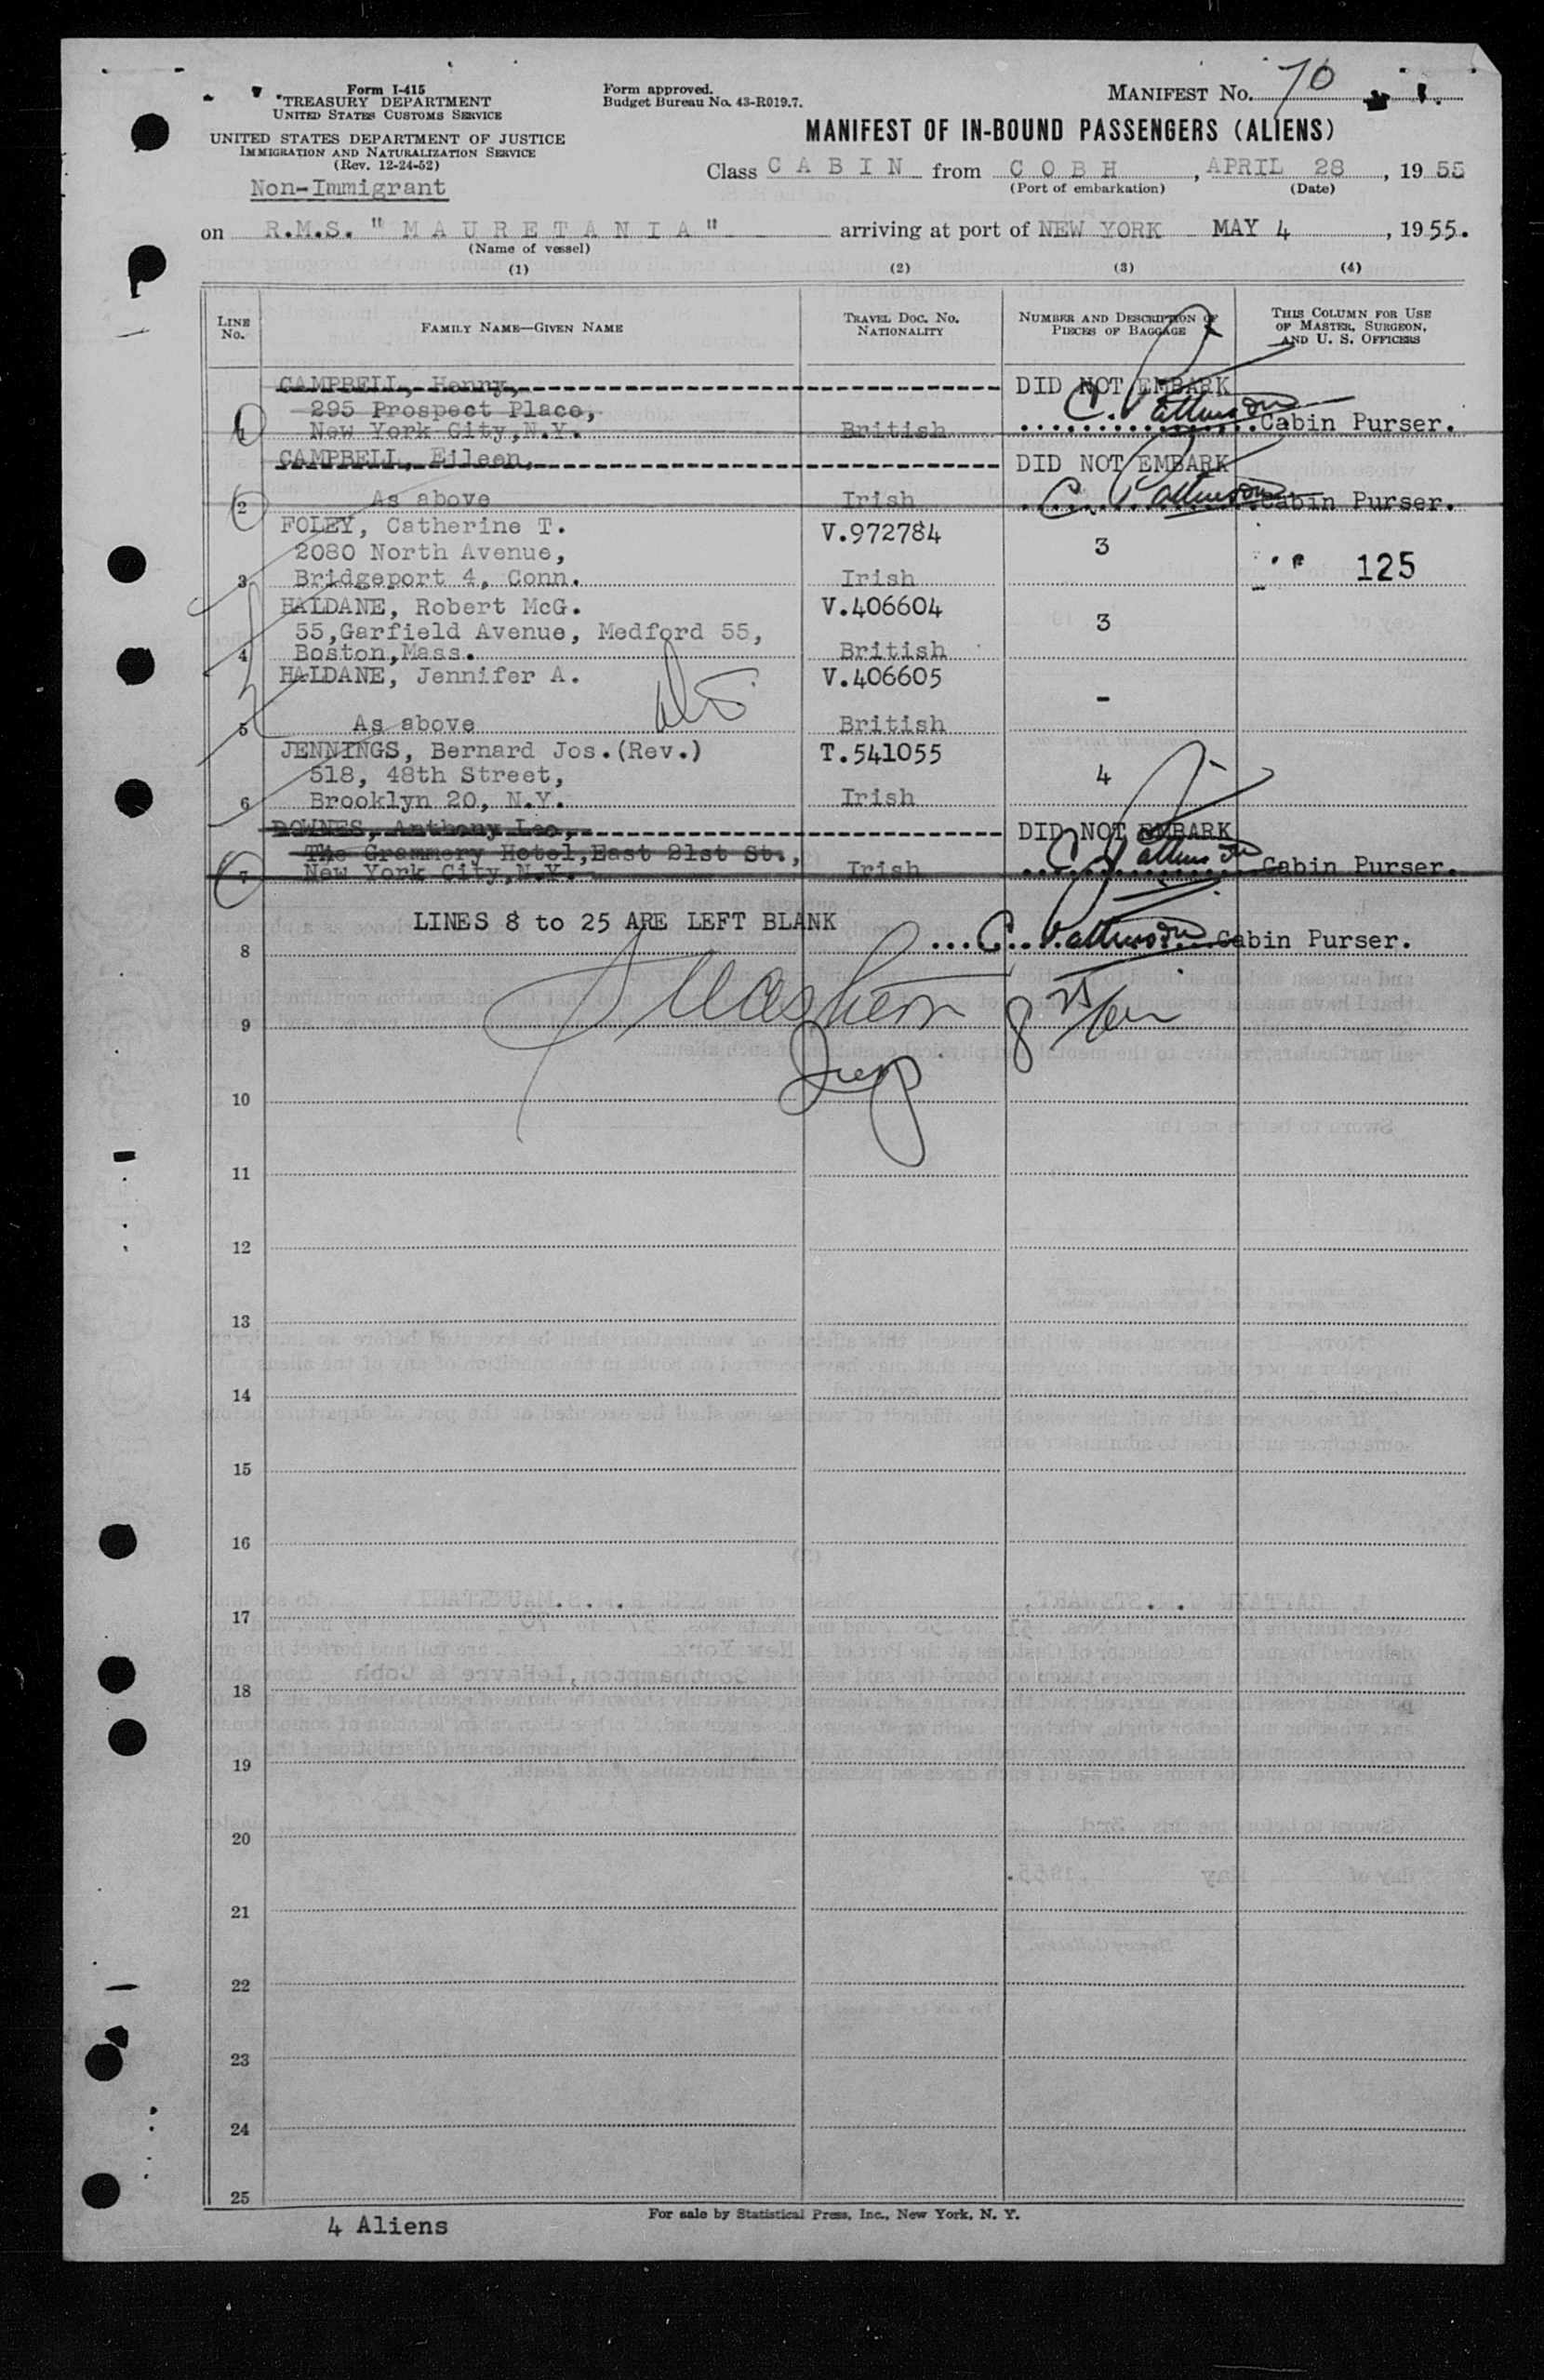 Form I-415
TREASURY DEPARTMENT
UNITED STATES CUSTOMS SERVICE
UNITED STATES DEPARTMENT OF JUSTICE
IMMIGRATION AND NATURALIZATION SERVICE
(Rev. 12-24-52)
Non-Immigrant
Form approved.
Budget Bureau No. 43-R019.7.
MANIFEST NO. 70
MANIFEST OF IN-BOUND PASSENGERS (ALIENS)
Class CABIN from COBH, APRIL 28, 1955
(Port of embarkation) (Date)
on R.M.S. "MAURETANIA" arriving at port of NEW YORK MAY 4, 1955.
(Name of vessel)
(1) (2) (3) (4)
LINE No. FAMILY NAME—GIVEN NAME TRAVEL DOC. NO. NATIONALITY NUMBER AND DESCRIPTION OF PIECES OF BAGGAGE THIS COLUMN FOR USE OF MASTER, SURGEON, AND U. S. OFFICERS
CAMPBELL, Henry, DID NOT EMBARK
295 Prospect Place,
1 New York City, N.Y. British Cabin Purser.
CAMPBELL, Eileen, DID NOT EMBARK
2 As above Irish Cabin Purser.
FOLEY, Catherine T. V.972784
2080 North Avenue, 3
3 Bridgeport 4, Conn. Irish 125
HALDANE, Robert McG. V.406604
55, Garfield Avenue, Medford 55, 3
4 Boston, Mass. British
HALDANE, Jennifer A. V.406605
-
5 As above British
JENNINGS, Bernard Jos. (Rev.) T.541055
518, 48th Street, 4
6 Brooklyn 20, N.Y. Irish
DOWNES, Anthony Leo, DID NOT EMBARK
The Grammery Hotel, East 21st St.,
7 New York City, N.Y. Irish Cabin Purser.
LINES 8 to 25 ARE LEFT BLANK
8 Cabin Purser.
9
10
11
12
13
14
15
16
17
18
19
20
21
22
23
24
25
For sale by Statistical Press, Inc., New York, N. Y.
4 Aliens